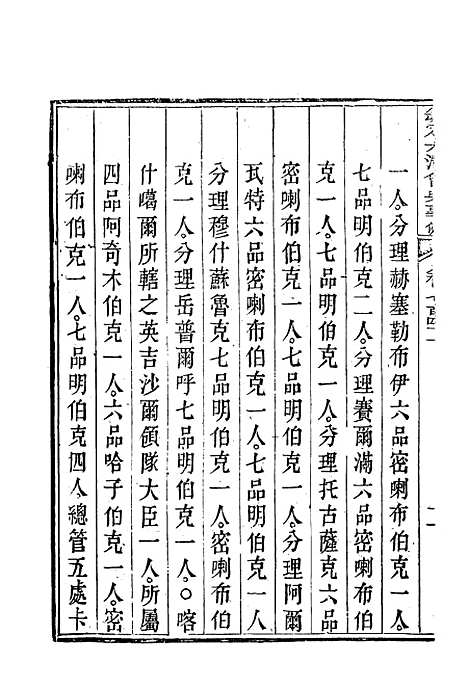 一人。分理赫塞勒布伊六品密喇布伯克一人。
七品明伯克二人。分理賽爾滿六品密喇布伯
克一人。七品明伯克一人。分理托古薩克六品
密喇布伯克一人。七品明伯克一人。分理阿爾
瓦特六品密喇布伯克一人。七品明伯克一人
分理穆什蘇魯克七品明伯克一人。密喇布伯
克一人。分理岳普爾呼七品明伯克一人。○喀
什噶爾所轄之英吉沙爾領隊大臣一人。所屬
四品阿奇木伯克一人。六品哈子伯克一人。密
喇布伯克一人。七品明伯克四人。總管五處卡